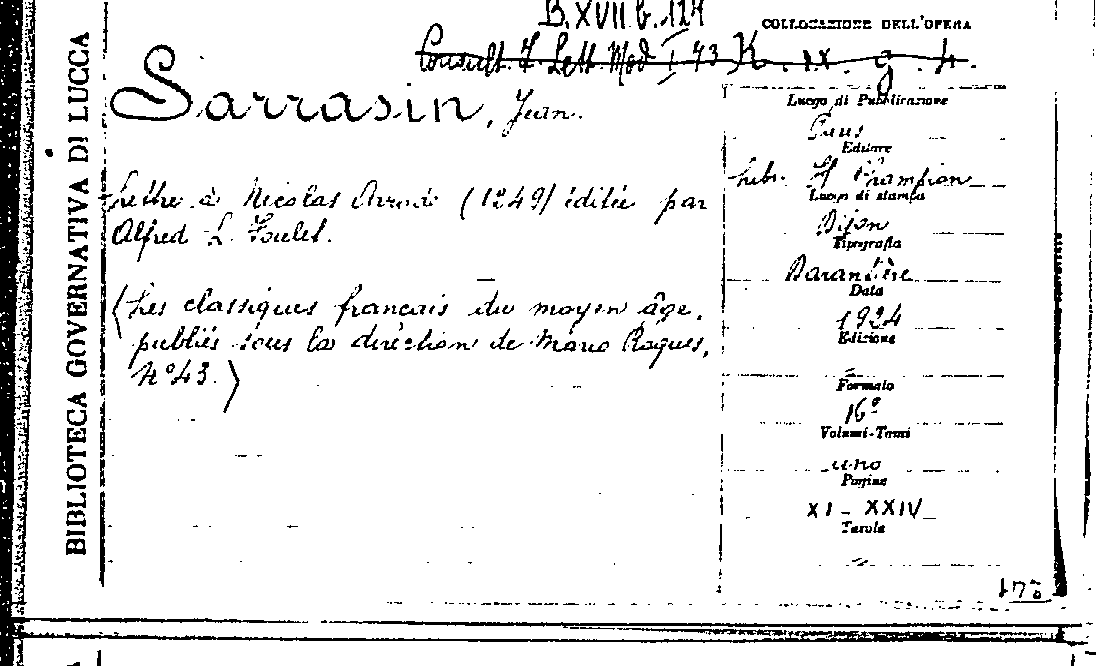 B.XVII.b.124
COLLOCAZIONE DELL'OPERA
Consult. F. Lett. Mod I 43 K. IX. g. 4.
BIBLIOTECA GOVERNATIVA DI LUCCA
Sarrasin, Jean.
Lettre à Nicolas Arrode (1249) éditée par
Alfred L. Foulet.
(Les classiques français du moyen âge,
publiés sous la direction de Mario Roques,
N° 43.)
Luogo di Pubblicazione
Paris
Editore
Libr. H Champion
Luogo di stampa
Dijon
Tipografia
Darantière
Data
1924
Edizione
Formato
16°
Volumi-Tomi
uno
Pagine
XI - XXIV
Tavole